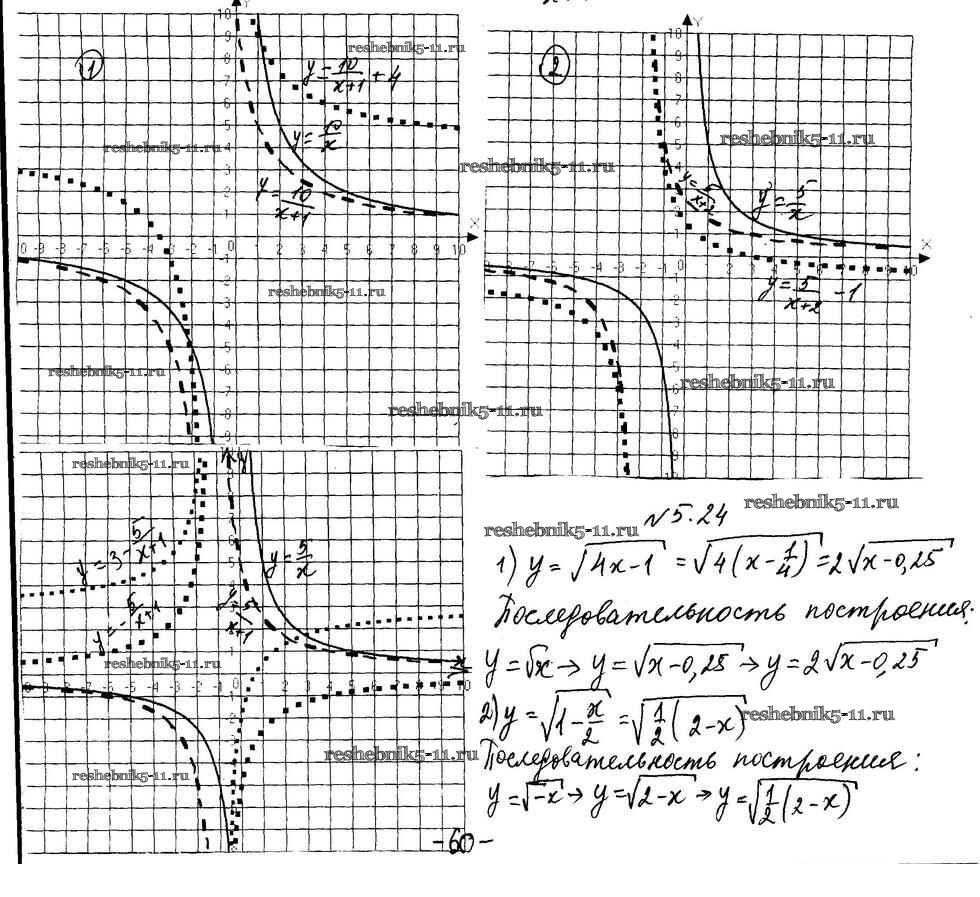 ①
Y
reshebnik5-11.ru
y = 10/(x+1) + 4
y = 10/x
reshebnik5-11.ru
y = 10/(x+1)
X
-10 -9 -8 -7 -6 -5 -4 -3 -2 -1 0 1 2 3 4 5 6 7 8 9 10
reshebnik5-11.ru
reshebnik5-11.ru
reshebnik5-11.ru
②
Y
reshebnik5-11.ru
reshebnik5-11.ru
y = 5/(x+2)
y = 5/x
X
y = 5/(x+2) - 1
reshebnik5-11.ru
reshebnik5-11.ru
y
y = 3 - 5/(x+1)
y = 5/x
y = -5/(x+1)
y = 5/(x+1)
reshebnik5-11.ru
x
reshebnik5-11.ru
reshebnik5-11.ru
reshebnik5-11.ru
reshebnik5-11.ru
№5.24
1) y = √(4x-1) = √(4(x-1/4)) = 2√(x-0,25)
Последовательность построения:
y = √x → y = √(x-0,25) → y = 2√(x-0,25)
2) y = √(1-x/2) = √(1/2(2-x))
reshebnik5-11.ru
Последовательность построения:
y = √-x → y = √(2-x) → y = √(1/2(2-x))
-60-